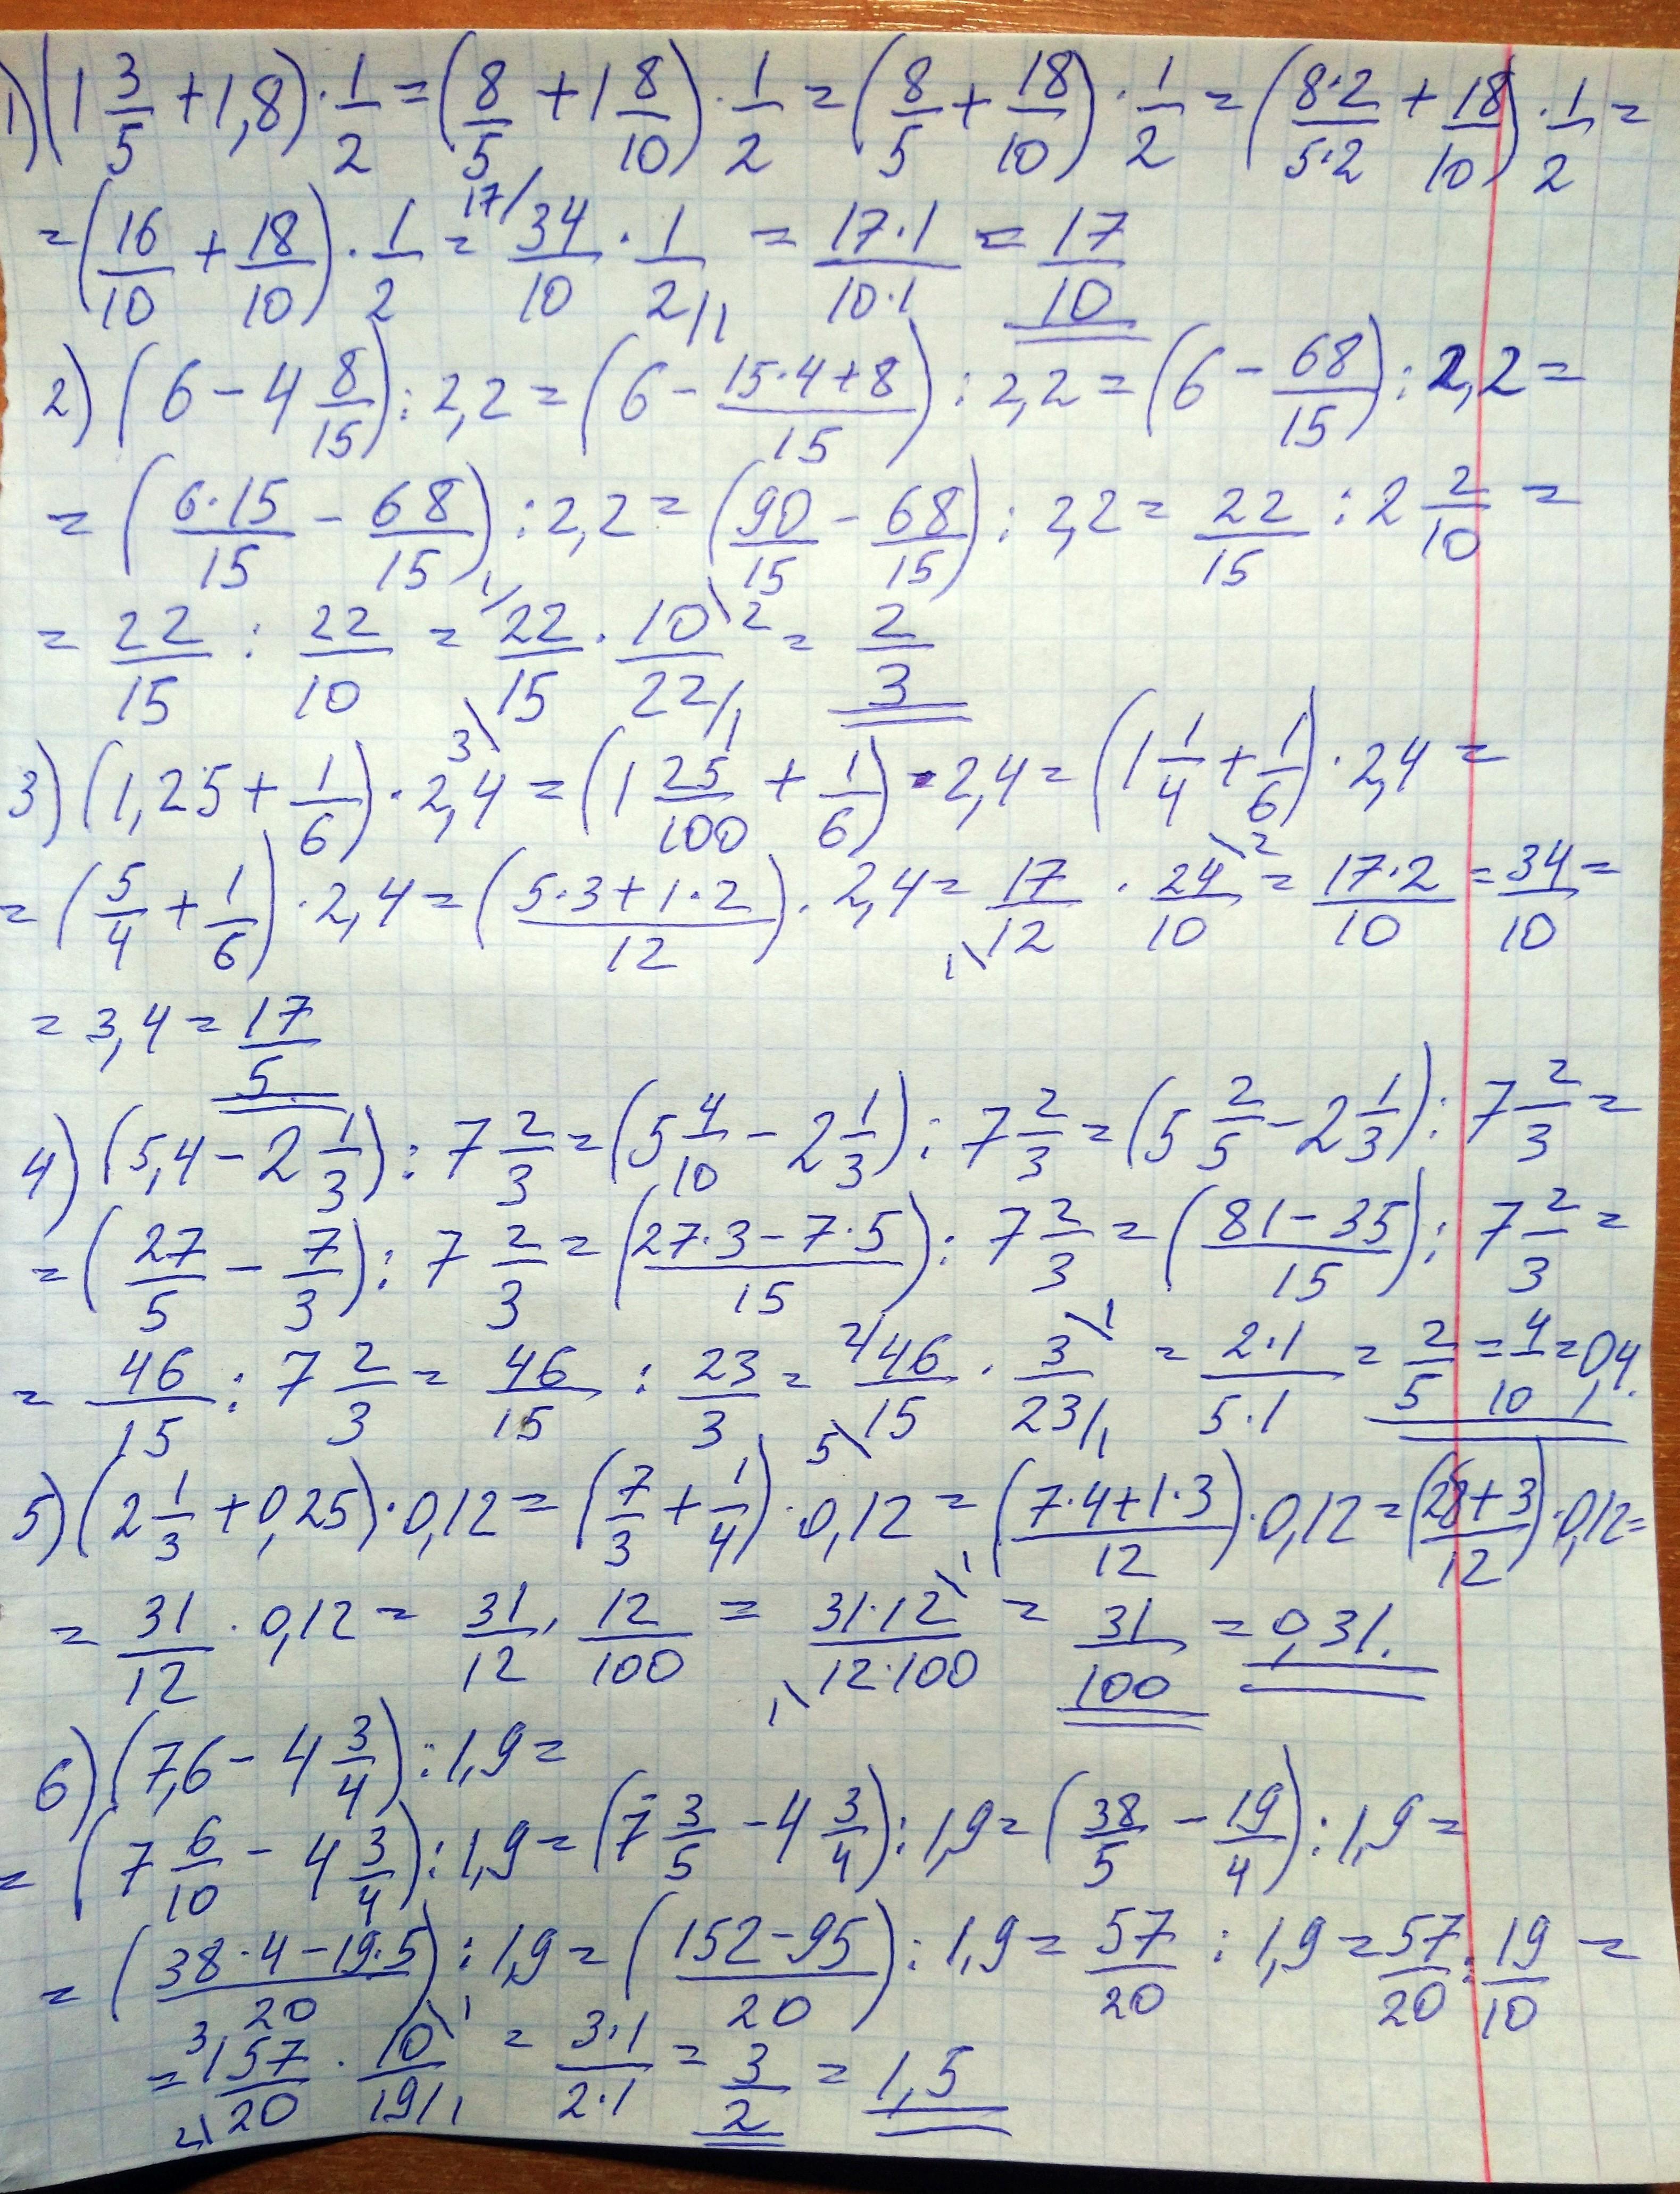 1) (1 3/5 + 1,8) · 1/2 = (8/5 + 1 8/10) · 1/2 = (8/5 + 18/10) · 1/2 = (8·2/5·2 + 18/10) · 1/2 =
= (16/10 + 18/10) · 1/2 = 17/ 34/10 · 1/2 /1 = 17·1/10·1 = 17/10
2) (6 - 4 8/15) : 2,2 = (6 - 15·4+8/15) : 2,2 = (6 - 68/15) : 2,2 =
= (6·15/15 - 68/15) : 2,2 = (90/15 - 68/15) : 2,2 = 22/15 : 2 2/10 =
= 22/15 : 22/10 = 1/ 22/15 3\ · 10/22 \2 /1 = 2/3
3) (1,25 + 1/6) · 2,4 = (1 25/100 + 1/6) · 2,4 = (1 1/4 + 1/6) · 2,4 =
= (5/4 + 1/6) · 2,4 = (5·3+1·2/12) · 2,4 = 17/12 1\ · 24/10 \2 = 17·2/10 = 34/10 =
= 3,4 = 17/5
4) (5,4 - 2 1/3) : 7 2/3 = (5 4/10 - 2 1/3) : 7 2/3 = (5 2/5 - 2 1/3) : 7 2/3 =
= (27/5 - 7/3) : 7 2/3 = (27·3-7·5/15) : 7 2/3 = (81-35/15) : 7 2/3 =
= 46/15 : 7 2/3 = 46/15 : 23/3 = 2/ 46/15 5\ · 3/23 \1 /1 = 2·1/5·1 = 2/5 = 4/10 = 0,4.
5) (2 1/3 + 0,25) · 0,12 = (7/3 + 1/4) · 0,12 = (7·4+1·3/12) · 0,12 = (28+3/12) · 0,12 =
= 31/12 · 0,12 = 31/12 · 12/100 = 31·12/12·100 \1 1\ = 31/100 = 0,31.
6) (7,6 - 4 3/4) : 1,9 =
= (7 6/10 - 4 3/4) : 1,9 = (7 3/5 - 4 3/4) : 1,9 = (38/5 - 19/4) : 1,9 =
= (38·4-19·5/20) : 1,9 = (152-95/20) : 1,9 = 57/20 : 1,9 = 57/20 : 19/10 =
= 3/ 57/20 2\ · 10/19 \1 /1 = 3·1/2·1 = 3/2 = 1,5